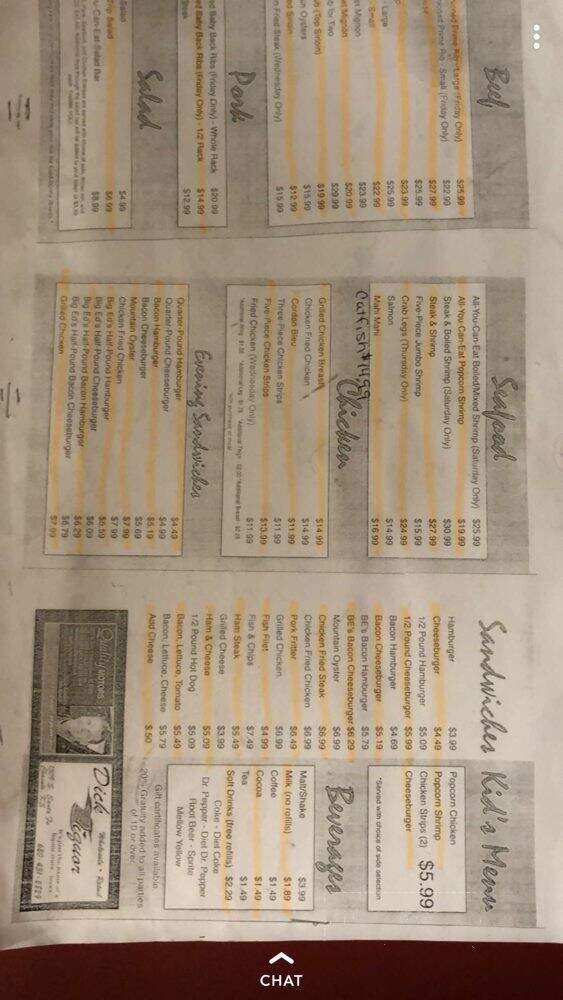 Beef
Prime Rib - Large (Friday Only) $25.99
Prime Rib - Small (Friday Only) $22.99
$27.99
$25.99
$23.99
Large $25.99
Small $22.99
Mignon $23.99
Mignon $20.99
for Two $29.99
(Top Sirloin) $19.99
Oysters $15.99
Sirloin $12.99
Fried Steak (Wednesday Only) $15.99
Pork
Baby Back Ribs (Friday Only) - Whole Rack $20.99
Baby Back Ribs (Friday Only) - 1/2 Rack $14.99
Steak $12.99
Salad
Salad $4.99
Salad $6.99
-Can-Eat Salad Bar $8.99
Seafood
All-You-Can-Eat Boiled/Mixed Shrimp (Saturday Only) $25.99
All-You-Can-Eat Popcorn Shrimp $19.99
Steak & Boiled Shrimp (Saturday Only) $30.99
Steak & Shrimp $27.99
Five-Piece Jumbo Shrimp $15.99
Crab Legs (Thursday Only) $24.99
Salmon $14.99
Mahi Mahi $16.99
Catfish $14.99
Chicken
Grilled Chicken Breast $14.99
Chicken Fried Chicken $14.99
Cordon Bleu $11.99
Three-Piece Chicken Strips $11.99
Five-Piece Chicken Strips $13.99
Fried Chicken (Wednesday Only) $11.99
Evening Sandwiches
Quarter-Pound Hamburger $4.49
Quarter-Pound Cheeseburger $4.99
Bacon Hamburger $5.19
Bacon Cheeseburger $5.69
Mountain Oyster $7.99
Chicken Fried Chicken $7.99
Big Ed's Half Pound Hamburger $5.59
Big Ed's Half-Pound Cheeseburger $6.09
Big Ed's Half-Pound Bacon Hamburger $6.29
Big Ed's Half-Pound Bacon Cheeseburger $6.79
Grilled Chicken $7.99
Sandwiches
Hamburger $3.99
Cheeseburger $4.49
1/2 Pound Hamburger $5.09
1/2 Pound Cheeseburger $5.99
Bacon Hamburger $4.69
Bacon Cheeseburger $5.19
BE's Bacon Hamburger $5.79
BE's Bacon Cheeseburger $6.29
Mountain Oyster $6.99
Chicken Fried Steak $6.99
Chicken Fried Chicken $6.99
Pork Fritter $6.49
Grilled Chicken $6.99
Fish Filet $4.99
Fish & Chips $7.49
Ham Steak $5.49
Grilled Cheese $3.99
Ham & Cheese $5.09
1/2 Pound Hot Dog $5.09
Bacon, Lettuce, Tomato $5.49
Bacon, Lettuce, Cheese $5.79
Add Cheese $.50
Kid's Menu
Popcorn Chicken
Popcorn Shrimp
Chicken Strips (2) $5.99
Cheeseburger
*Served with choice of side selection
Beverages
Malt/Shake $3.99
Milk (no refills) $1.89
Coffee $1.49
Cocoa $1.49
Tea $1.49
Soft Drinks (free refills) $2.29
Coke - Diet Coke
Dr. Pepper - Diet Dr. Pepper
Root Beer - Sprite
Mellow Yellow
Gift certificates available
20% Gratuity added to all parties
of 10 or over.
Quality
Dick
Liquor
Wholesale - Retail
CHAT